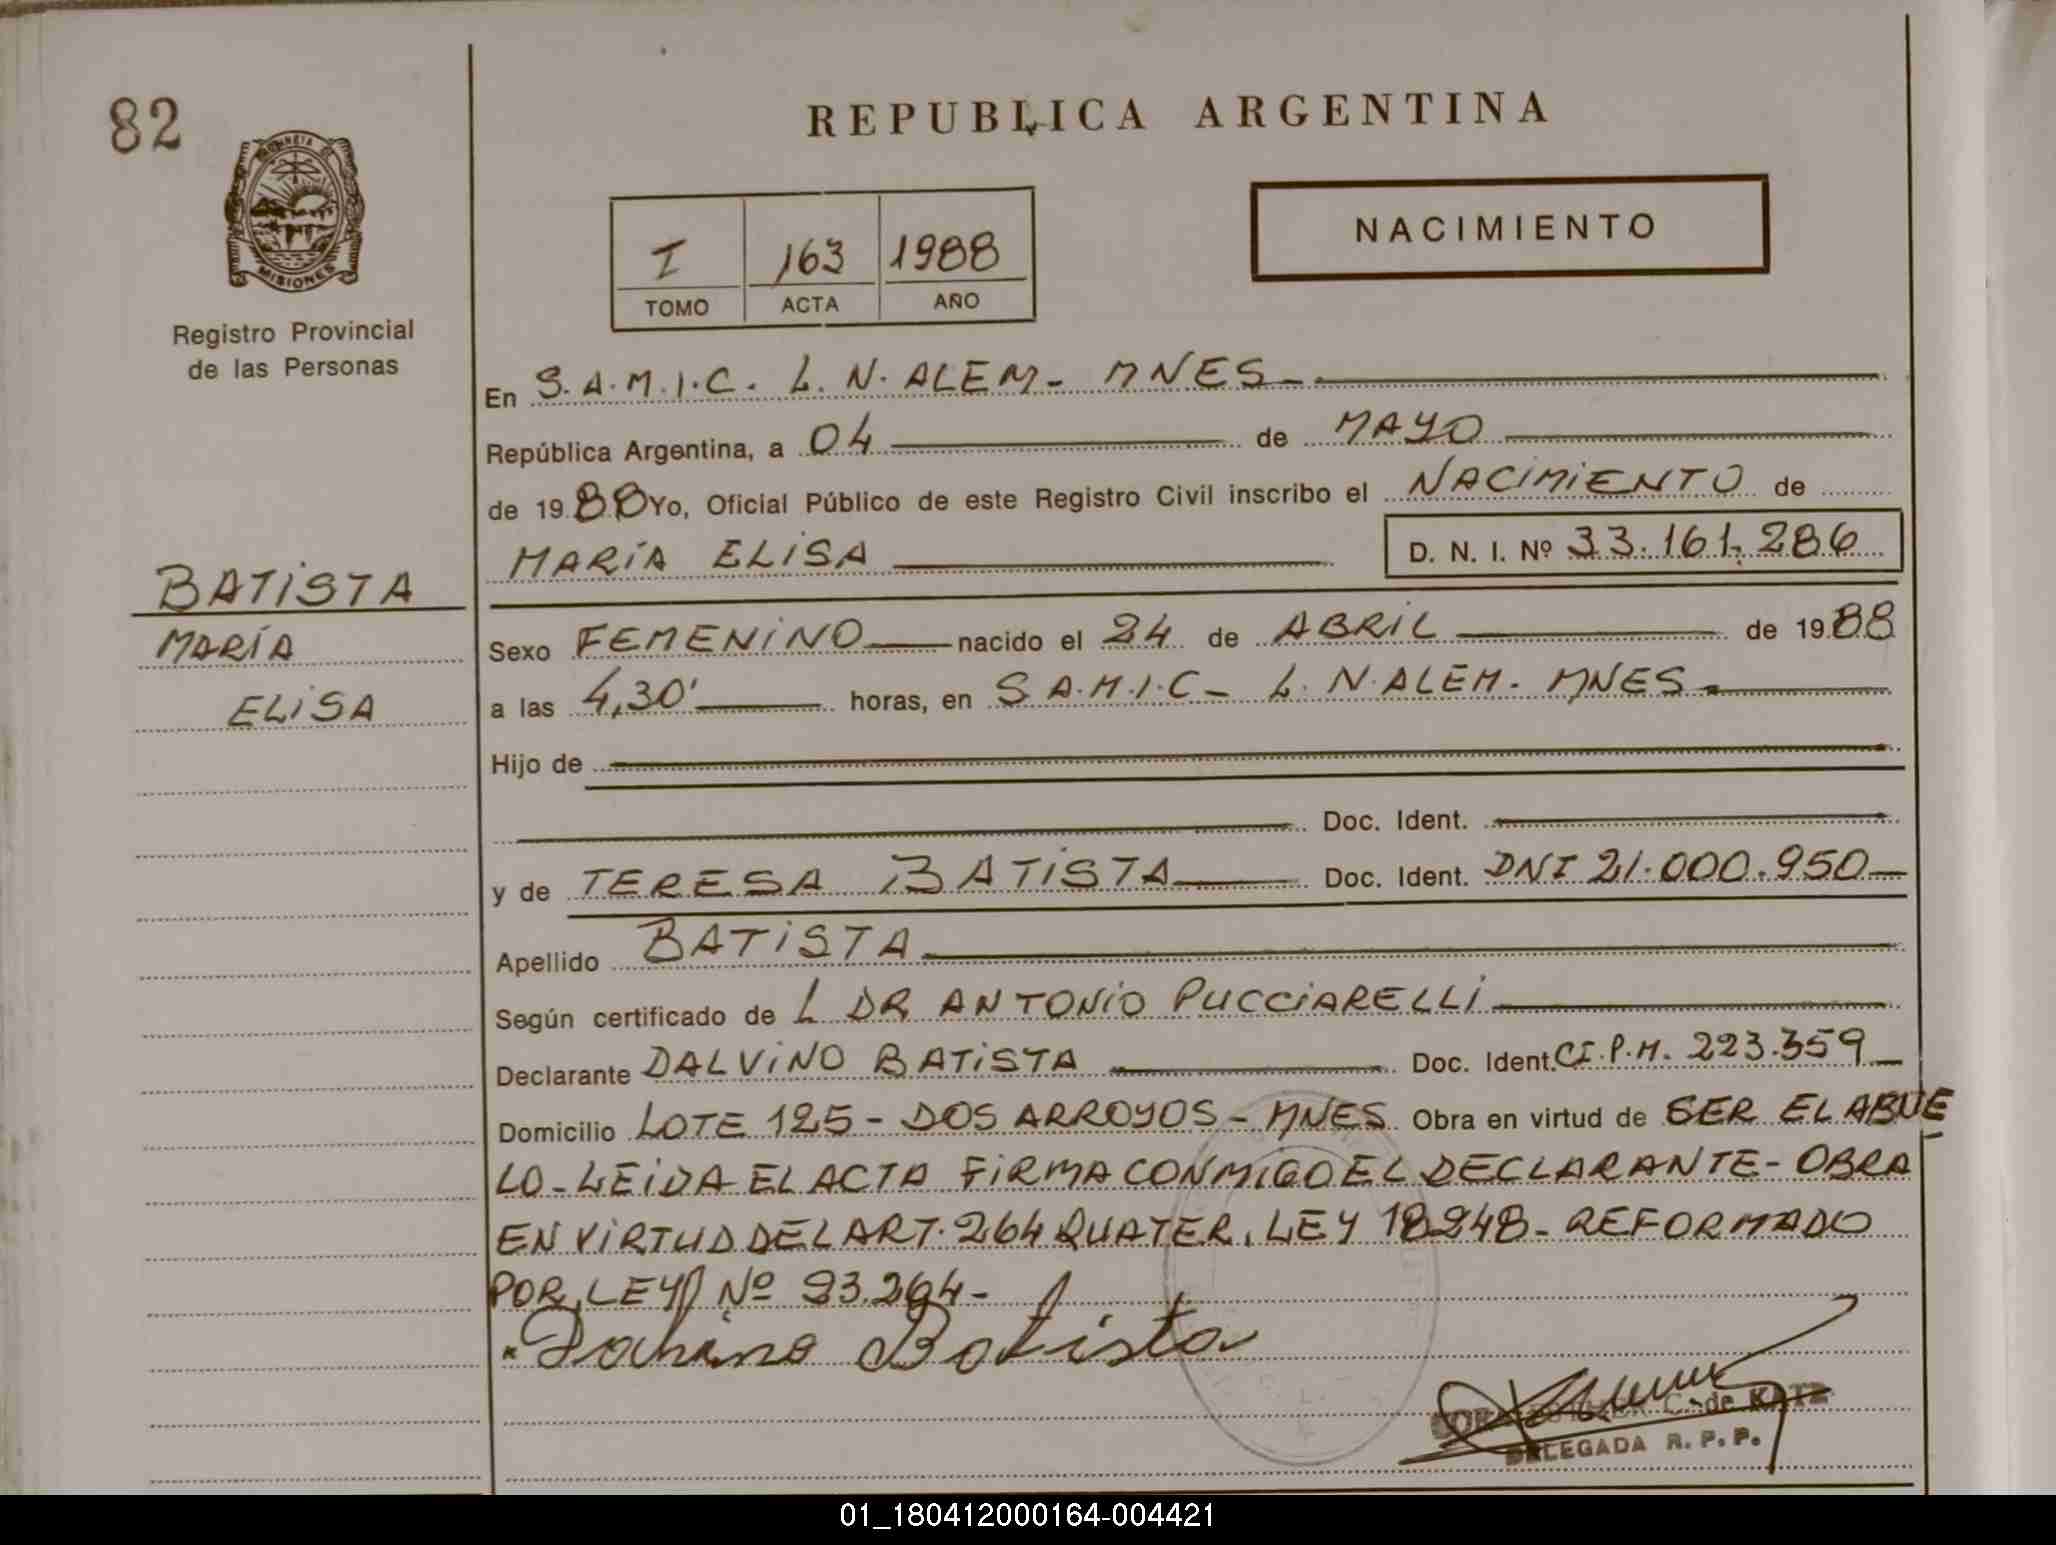 82
PROVINCIA DE
MISIONES
Registro Provincial
de las Personas
BATISTA
MARÍA
ELISA
REPUBLICA ARGENTINA
I 163 1988
TOMO ACTA AÑO
NACIMIENTO
En S.A.M.I.C. L.N.ALEM- MNES-
República Argentina, a 04 de MAYO
de 1988 Yo, Oficial Público de este Registro Civil inscribo el NACIMIENTO de
MARÍA ELISA D. N. I. Nº 33.161.286
Sexo FEMENINO nacido el 24 de ABRIL de 1988
a las 4,30' horas, en S.A.M.I.C- L.N.ALEM. MNES-
Hijo de
Doc. Ident.
y de TERESA BATISTA Doc. Ident. DNI 21.000.950
Apellido BATISTA
Según certificado de L DR ANTONIO PUCCIARELLI
Declarante DALVINO BATISTA Doc. Ident. CI.P.M. 223.359
Domicilio LOTE 125 - DOS ARROYOS - MNES Obra en virtud de SER EL ABUE
LO-LEIDA EL ACTA FIRMA CONMIGO EL DECLARANTE- OBRA
EN VIRTUD DEL ART. 264 QUATER, LEY 18248- REFORMADO
POR LEY Nº 23.264-
Dalvino Batista
C. de KATZ
DELEGADA R. P. P.
01_180412000164-004421